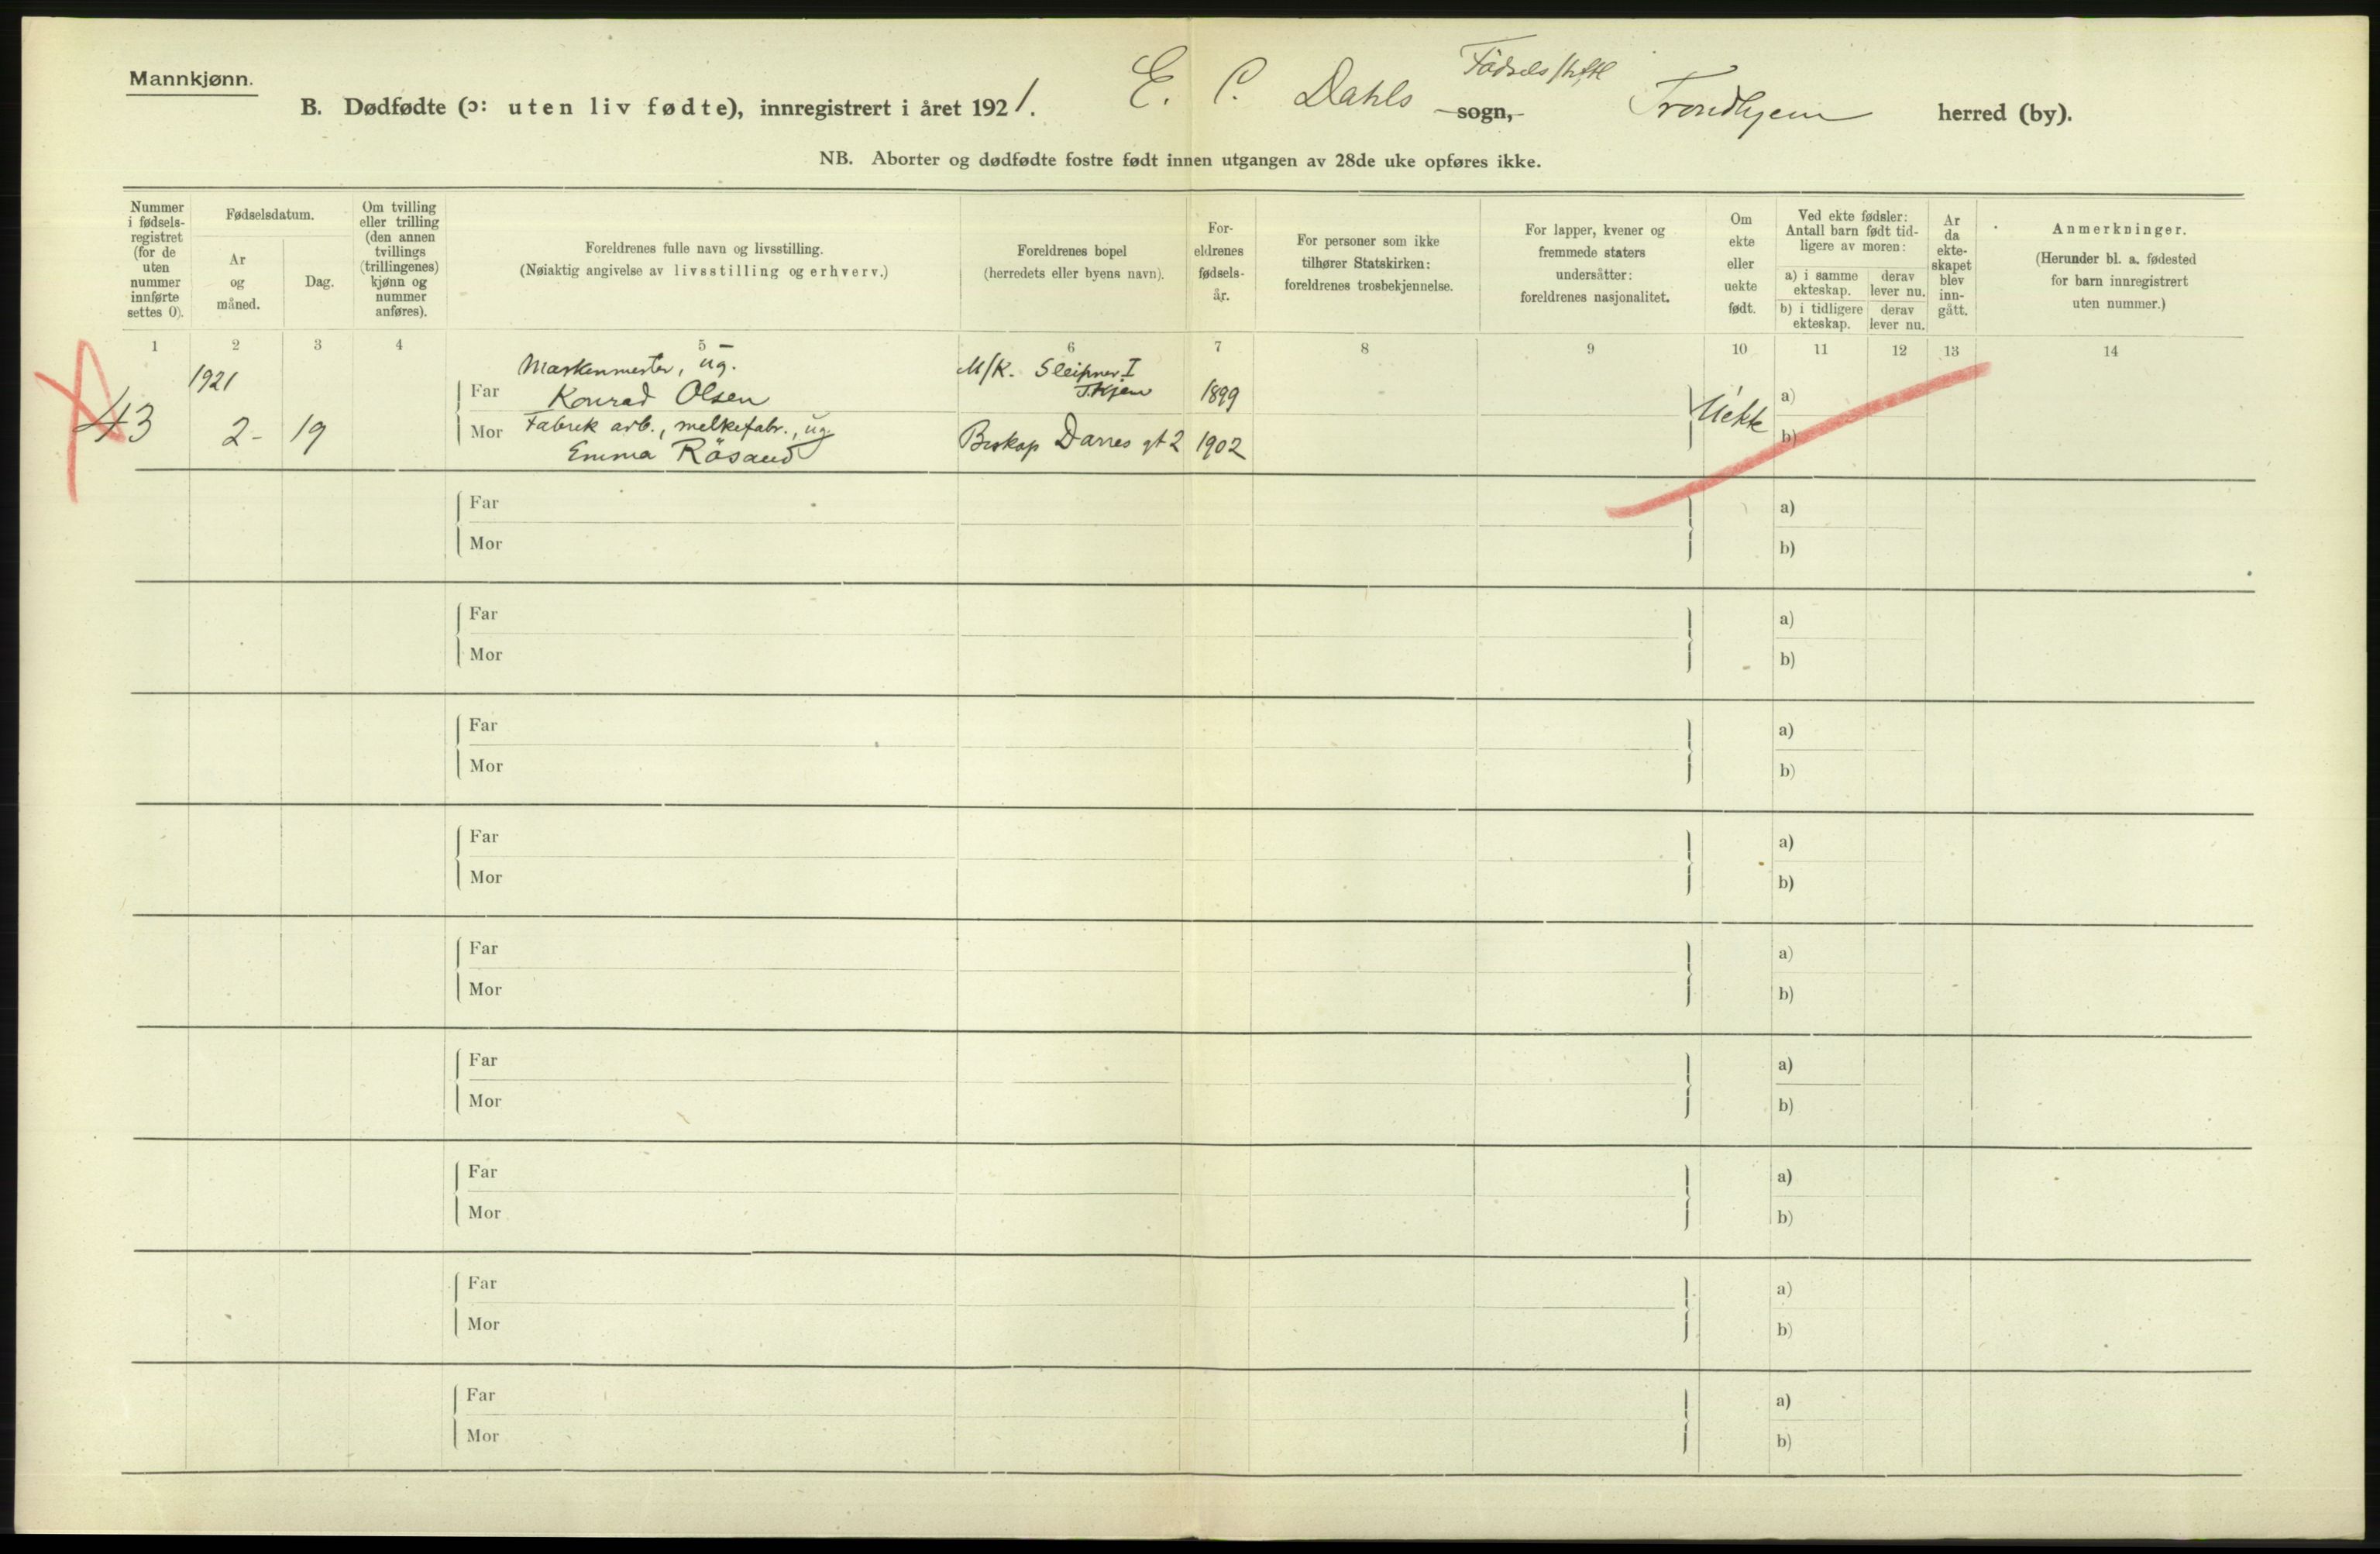 Mannkjønn.
B. Dødfødte (ɔ: uten liv fødte), innregistrert i året 1921. E. C. Dahls Fødsels -sogn,- Trondhjem herred (by).
NB. Aborter og dødfødte fostre født innen utgangen av 28de uke opføres ikke.
Nummer i fødsels-registret (for de uten nummer innførte settes 0).
Fødselsdatum.
Ar og måned.
Dag.
Om tvilling eller trilling (den annen tvillings (trillingenes) kjønn og nummer anføres).
Foreldrenes fulle navn og livsstilling.
(Nøiaktig angivelse av livsstilling og erhverv.)
Foreldrenes bopel
(herredets eller byens navn).
For-eldrenes fødsels-år.
For personer som ikke tilhører Statskirken: foreldrenes trosbekjennelse.
For lapper, kvener og fremmede staters undersåtter: foreldrenes nasjonalitet.
Om ekte eller uekte født.
Ved ekte fødsler: Antall barn født tid-ligere av moren:
a) i samme ekteskap.
derav lever nu.
b) i tidligere ekteskap.
derav lever nu.
Ar da ekte-skapet blev inn-gått.
Anmerkninger.
(Herunder bl. a. fødested for barn innregistrert uten nummer.)
1 2 3 4 5 6 7 8 9 10 11 12 13 14
1921 Maskenmester, ug. M/K. Sleipner I
Far Konrad Olsen T.hjem 1899 a)
43 2- 19 Mor Fabrik arb., melkefabr., ug. Uekte b)
Emma Rösand Biskop Darres gt 2 1902
Far a)
Mor b)
Far a)
Mor b)
Far a)
Mor b)
Far a)
Mor b)
Far a)
Mor b)
Far a)
Mor b)
Far a)
Mor b)
Far a)
Mor b)
Far a)
Mor b)